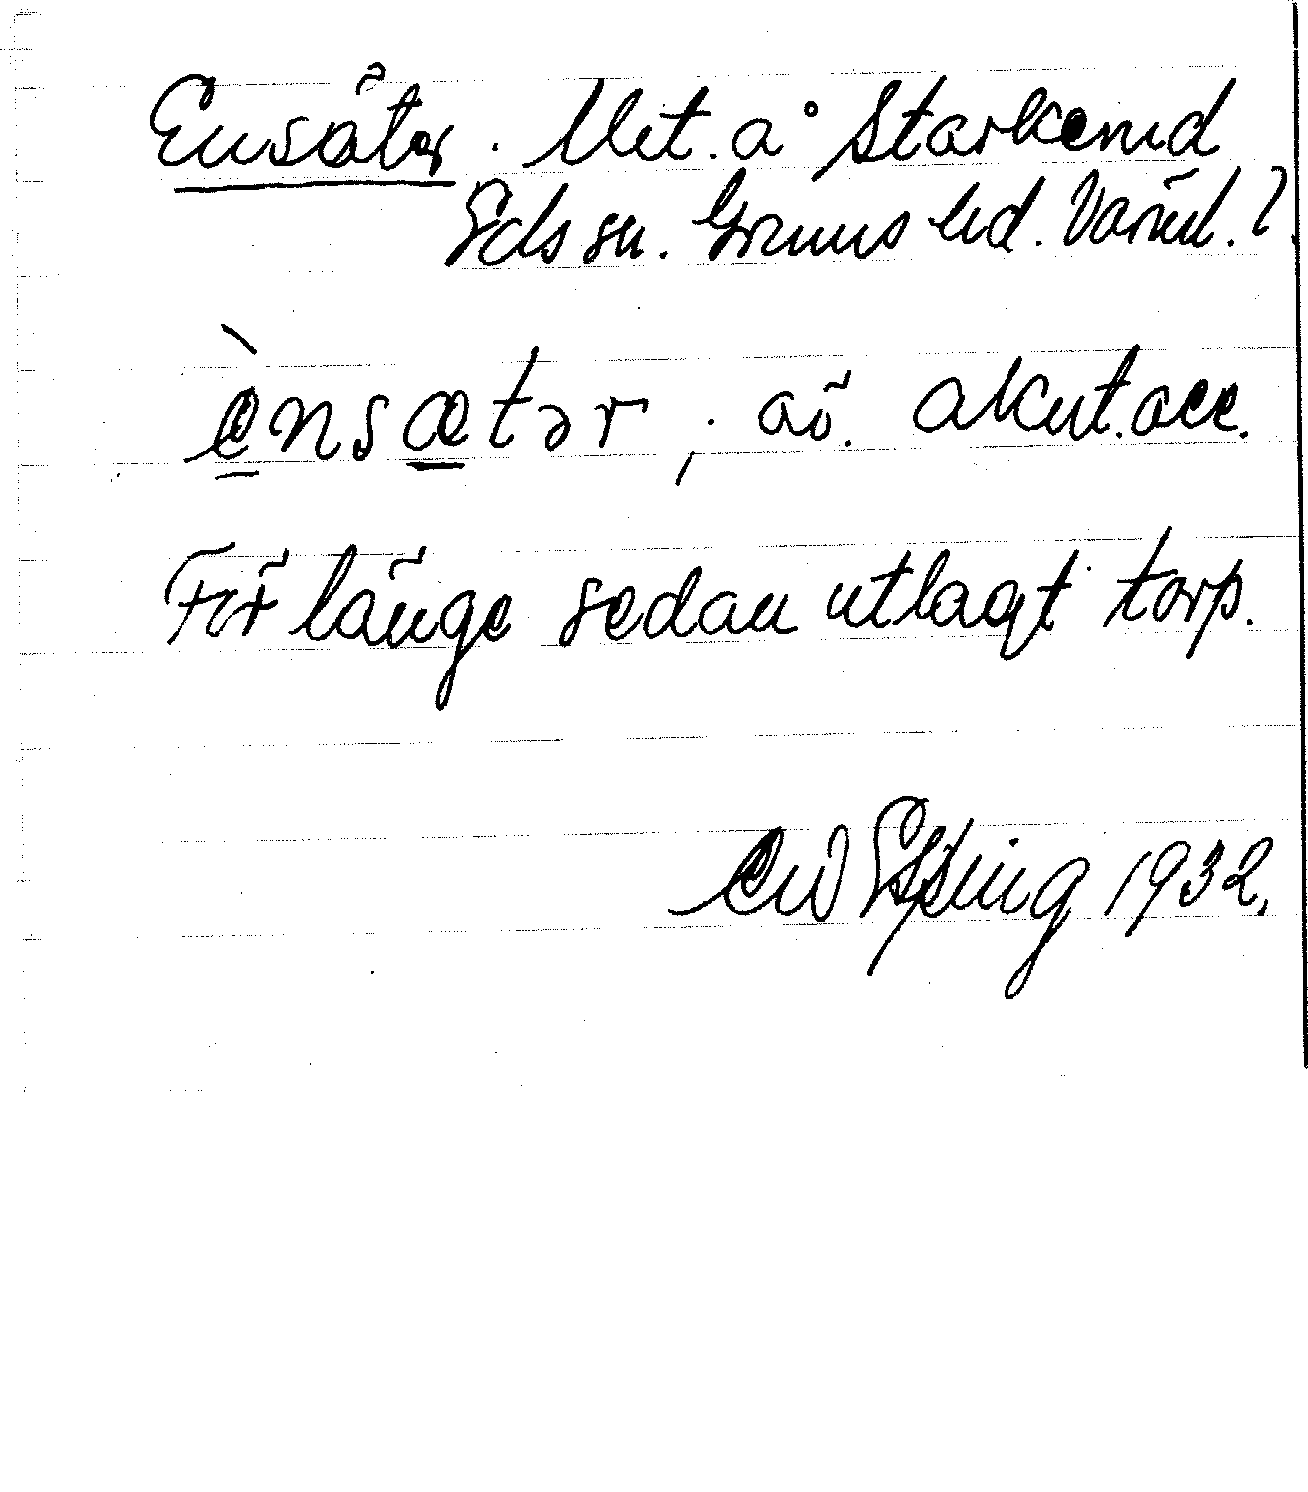 Ensäter. Utet. å Starkerud
Eds sn. Grums hd. Värml. l.
ènsætər, äv. akut. acc.
För länge sedan utlagt torp.
Espling 1932.